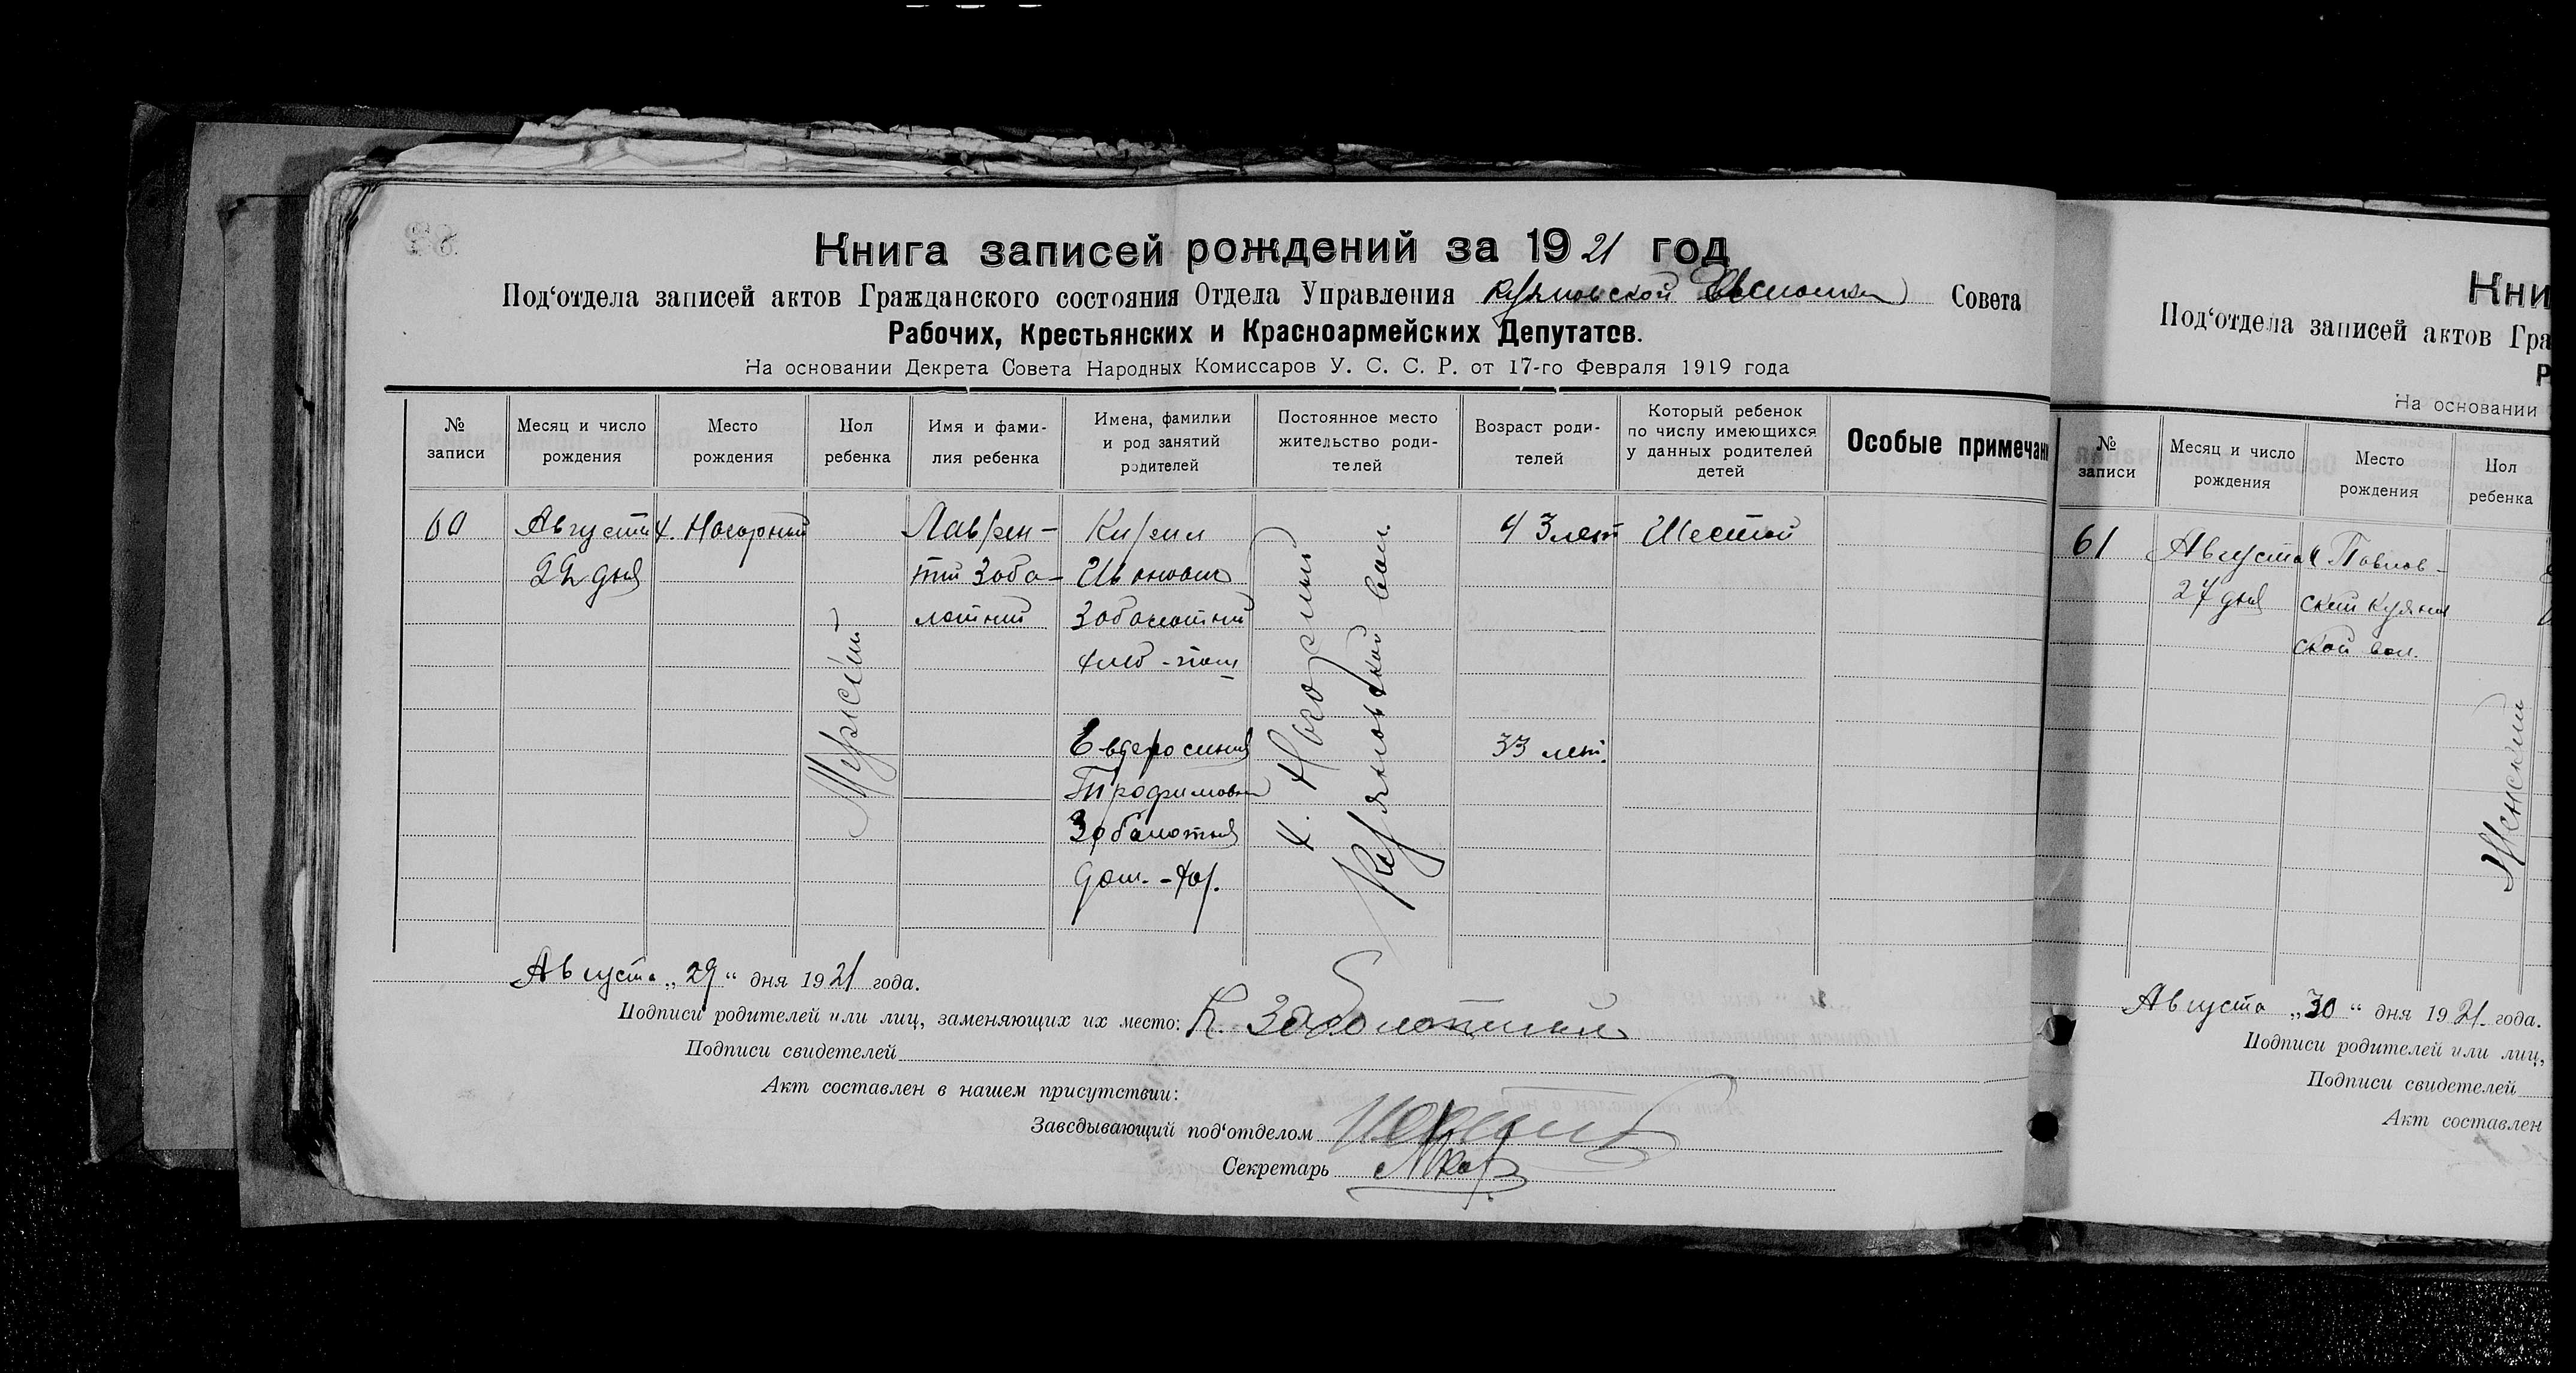 Книга записей рождений за 1921 год
Под‘отдела записей актов Гражданского состояния Отдела Управления Совета
Рабочих, Крестьянских и Красноармейских Депутатов.
На основании Декрета Совета Народных Комиссаров У. С. С. Р. от 17-го Февраля 1919 года
№ записи
Месяц и число рождения
Место рождения
Пол ребенка
Имя и фами-
лия ребенка
Имена, фамилии
и род занятий
родителей
Постоянное место
жительство роди-
телей
Возраст роди-
телей
Который ребенок
по числу имеющихся
у данных родителей
детей
Особые примечан
60
Августа
22 дня
х. Нагорный
Мужской
Лаврен-
тий Забо-
лотний
Кирил
Иванович
Заболотний
хлеб-паш
Евфросиния
Трофимовна
Заболотная
дом.-хоз.
х. Нагорний
вол.
43 лет
33 лет.
Шестой
Августа „29“ дня 1921 года.
Подписи родителей или лиц, заменяющих их место: К. Заболотний
Подписи свидетелей
Акт составлен в нашем присутствии:
Заведывающий под‘отделом
Секретарь
Кни
Под‘отдела записей актов Гра
Р
На основании
№ записи
Месяц и число рождения
Место рождения
Пол ребенка
61
Августа
27 дня
х Павлов-
ский
ской вол.
Женский
Августа „30“ дня 1921 года.
Подписи родителей или лиц,
Подписи свидетелей
Акт составлен